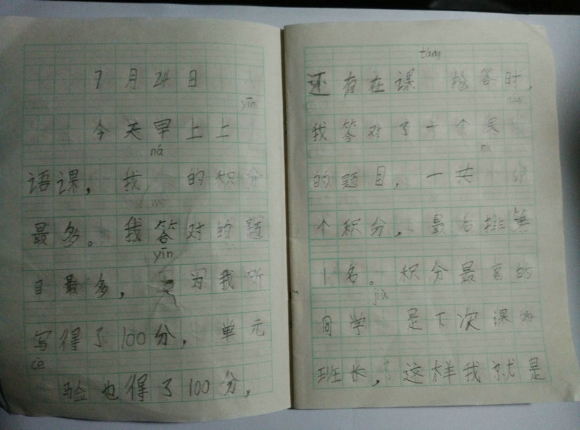 7月24日
yīn
今天早上上
ná
语课，我 的积分
最多。我答对的题
yīn
目最多， 为我听
写得了100分，单元
cè
验也得了100分，
táng
还有在课 抢答时，
我答对了十个
的题目，一共
个积分，最后排第
1名。积分最高的
jiù
同学 是下次课的
班长，这样我就是